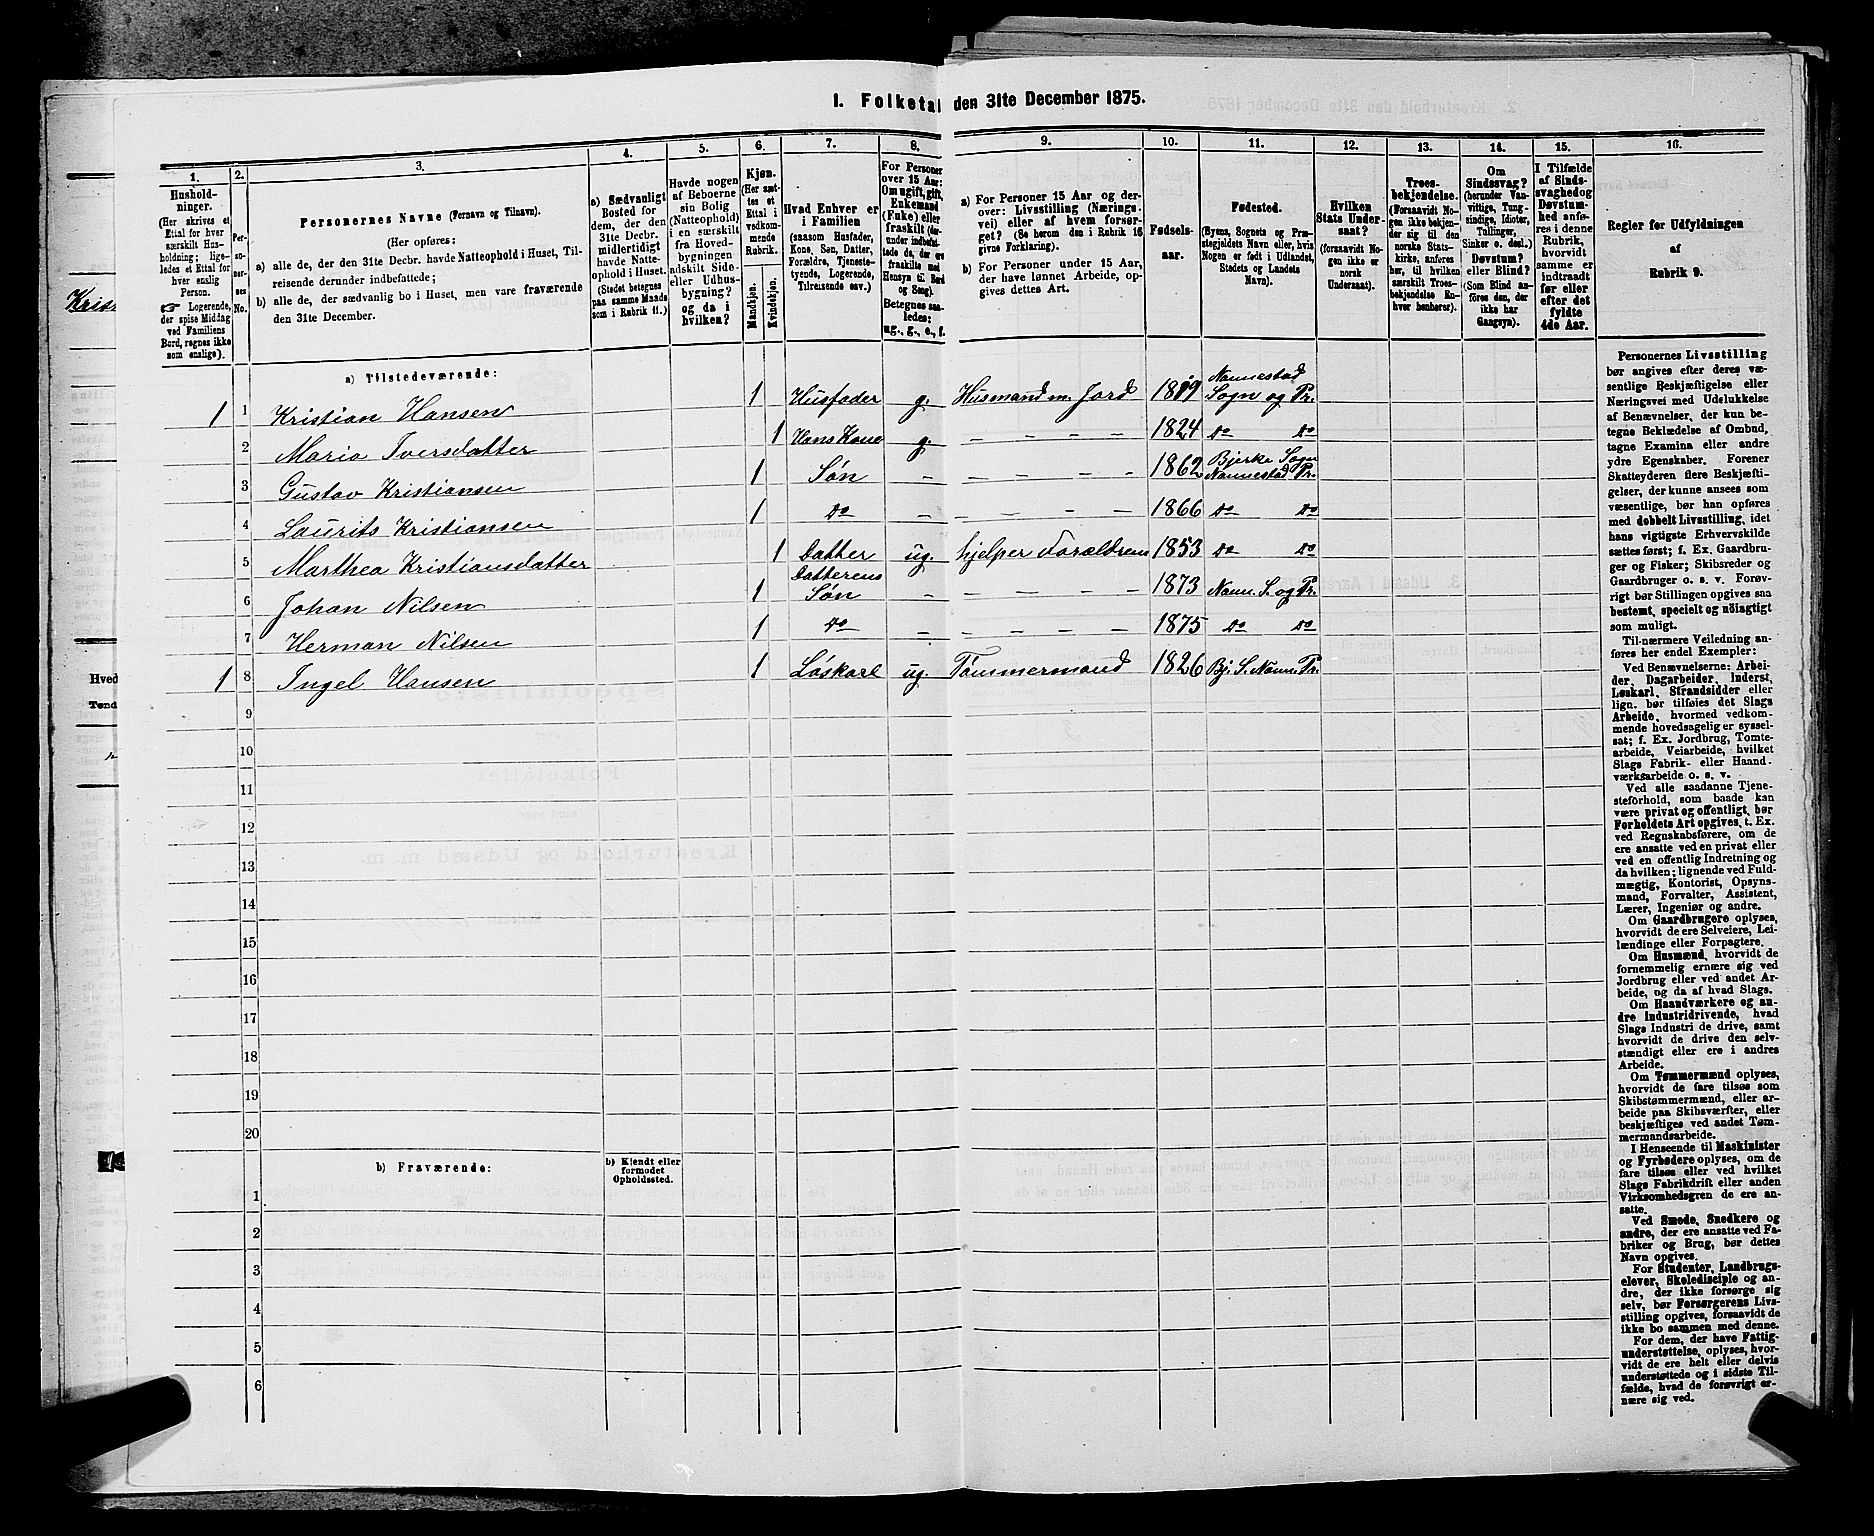 1. Folketal den 31te December 1875.
1.
2.
3.
4.
5.
6.
7.
8.
9.
10.
11.
12.
13.
14.
15.
16.
Hushold-
ninger.
(Her skrives et
Ettal for hver
særskilt Hus-
holdning; lige-
ledes et Ettal for
hver enslig
Person.
☞ Logerende,
der spise Middag
ved Familiens
Bord, regnes ikke
som enslige).
Per-
so-
ner-
nes
No.
Personernes Navne (Fornavn og Tilnavn).
(Her opføres:
a) alle de, der den 31te Decbr. havde Natteophold i Huset, Til-
reisende derunder indbefattede;
b) alle de, der sædvanlig bo i Huset, men vare fraværende
den 31te December.
a) Sædvanligt
Bosted for
dem, der den
31te Decbr.
midlertidigt
havde Natte-
ophold i Huset.
(Stedet betegnes
paa samme Maade
som i Rubrik 11.)
Havde nogen
af Beboerne
sin Bolig
(Natteophold)
i en særskilt
fra Hoved-
bygningen
adskilt Side-
eller Udhus-
bygning?
og da i
hvilken?
Kjøn.
(Her sæt-
tes et
Ettal i
vedkom-
mende
Rubrik.
Mandkjøn.
Kvindekjøn.
Hvad Enhver er
i Familien
(saasom Husfader,
Kone, Søn, Datter,
Forældre, Tjeneste-
tyende, Logerende,
Tilreisende osv.)
For Personer
over 15 Aar:
Om ugift, gift,
Enkemand
(Enke) eller
fraskilt (der-
under indbefat-
tede da, der ere
fraskilte med
Hensyn til Bord
og Seng).
Betegnes saa-
ledes:
ug., g., e., f.
a) For Personer 15 Aar og der-
over: Livsstilling (Nærings-
vei) eller af hvem forsør-
get? (Se herom den i Rubrik 16
givne Forklaring).
b) For Personer under 15 Aar,
der have lønnet Arbeide, op-
gives dettes Art.
Fødsels-
aar.
Fødested.
(Byens, Sognets og Præ-
stegjeldets Navn eller, hvis
Nogen er født i Udlandet,
Stedets og Landets
Navn).
Hvilken
Stats Under-
saat?
(forsaavidt No-
gen ikke er
norsk
Undersaat).
Troes-
bekjendelse.
(Forsaavidt No-
gen ikke bekjen-
der sig til den
norske Stats-
kirke, anføres
her, til hvilken
særskilt Troes-
bekjendelse En-
hver henhører).
Om
Sindssvag?
(herunder Van-
vittige, Tung-
sindige, Idioter,
Tullinger,
Sinker o. desl.)
Døvstum?
eller Blind?
(Som Blind an-
føres den, der
ikke har
Gangsyn).
I Tilfælde
af Sinds-
svaghed og
Døvstum-
hed anfø-
res i denne
Rubrik,
hvorvidt
samme er
indtraadt
før eller
efter det
fyldte
4de Aar.
Regler for Udfyldningen
af
Rubrik 9.
a) Tilstedeværende:
1 1 Kristian Hansen 1 Husfader g. Husmand m. Jord 1819 Nannestad Sogn og Pr.
2 Maria Iversdatter 1 Hans Kone g. – – – – 1824 Do Do
3 Gustav Kristiansen 1 Søn – – – – – 1862 Bjerke Sogn Nannestad Pr.
4 Laurits Kristiansen 1 Do – – – – – 1866 Do Do
5 Marthea Kristiansdatter 1 Datter ug. hjelper Forældrene 1853 Do Do
6 Johan Nilsen 1 Datterens Søn – – – – – 1873 Nann. S. og Pr.
7 Herman Nilsen 1 Do – – – – – 1875 Do Do
1 8 Ingel Hansen 1 Løskarl ug. Tømmermand 1826 Bj. S. Nann. Pr.
9
10
11
12
13
14
15
16
17
18
19
20
b) Fraværende:
b) Kjendt eller
formodet
Opholdssted.
1
2
3
4
5
6
Personernes Livsstilling
bør angives efter deres væ-
sentlige Beskjæftigelse eller
Næringsvei med Udelukkelse
af Benævnelser, der kun be-
tegne Beklædelse af Ombud,
tagne Examina eller andre
ydre Egenskaber. Forener
Skatteyderen flere Beskjæfti-
gelser, der kunne ansees som
væsentlige, bør han opføres
med dobbelt Livsstilling, idet
hans vigtigste Erhvervskilde
sættes først; f. Ex. Gaardbru-
ger og Fisker; Skibsreder og
Gaardbruger o. s. v. Forøv-
rigt bør Stillingen opgives saa
bestemt, specielt og nöiagtigt
som muligt.
Til nærmere Veiledning an-
føres her endel Exempler:
Ved Benævnelserne: Arbei-
der, Dagarbeider, Inderst,
Løskarl, Strandsidder eller
lign. bør tilføies det Slags
Arbeide, hvormed vedkom-
mende hovedsagelig er syssel-
sat; f. Ex. Jordbrug, Tomte-
arbeide, Veiarbeide, hvilket
Slags Fabrik- eller Haand-
værksarbeide o. s. v.
Ved alle saadanne Tjene-
steforhold, som baade kan
være privat og offentligt, bør
Forholdets Art opgives, t. Ex.
ved Regnskabsførere, om de
ere ansatte ved en privat eller
ved en offentlig Indretning og
da hvilken; lignende ved Fuld-
mægtig, Kontorist, Opsyns-
mand, Forvalter, Assistent,
Lærer, Ingeniør og andre.
Om Gaardbrugere oplyses,
hvorvidt de ere Selveiere, Lei-
lændinge eller Forpagtere.
Om Husmænd, hvorvidt de
fornemmelig ernære sig ved
Jordbrug eller ved andet Ar-
beide, og da af hvad Slags.
Om Haandværkere og an-
dre Industridrivende, hvad
Slags Industri de drive, samt
hvorvidt de drive den selv-
stændigt eller ere i andres
Arbeide.
Om Tømmermænd oplyses,
hvorvidt de fare tilsøs som
Skibstømmermænd, eller ar-
beide paa Skibsværfter, eller
beskjæftiges ved andet Tøm-
mermandsarbeide.
I Henseende til Maskinister
og Fyrbødere oplyses, om de
fare tilsøs eller ved hvilket
Slags Fabrikdrift eller anden
Virksomhedsgren de ere an-
satte.
Ved Smede, Snedkere og
andre, der ere ansatte ved Fa-
briker og Brug, bør dettes
Navn opgives.
For Studenter, Landbrugs-
elever, Skoledisciple og an-
dre, der ikke forsørge sig
selv, bør Forsørgerens Livs-
stilling opgives, forsaavidt de
ikke bo sammen med denne.
For dem, der have Fattig-
understøttelse, oplyses, hvor-
vidt de ere helt eller delvis
understøttede og i sidste Til-
fælde, hvad de forøvrigt er-
nære sig ved.